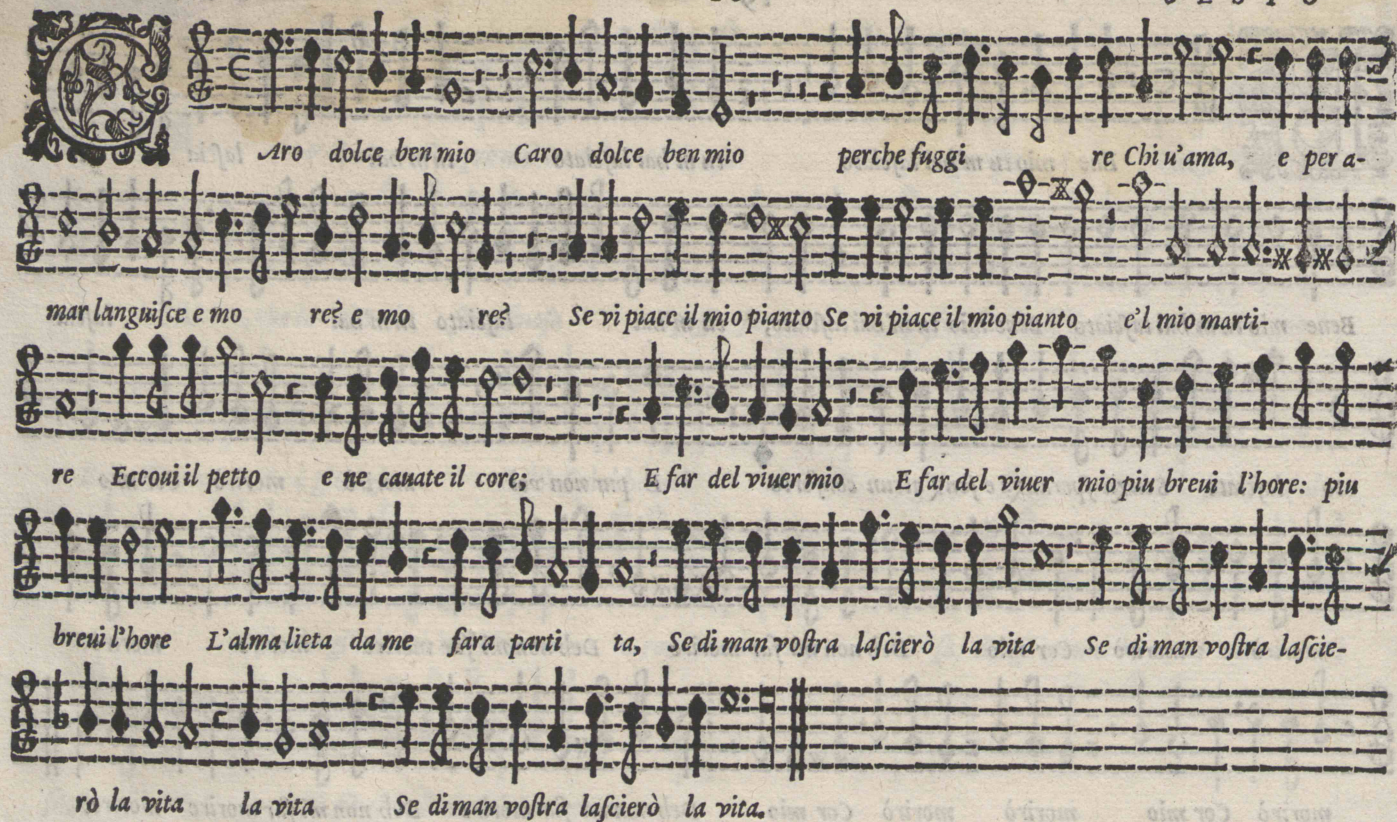 SESTO
CAro dolce ben mio Caro dolce ben mio perche fuggi re Chi u'ama, e per a-
mar languiſce e mo re? e mo re? Se vi piace il mio pianto Se vi piace il mio pianto e'l mio marti-
re Eccoui il petto e ne cauate il core; E far del viuer mio E far del viuer mio piu breui l'hore: piu
breui l'hore L'alma lieta da me fara parti ta, Se di man voſtra laſcierò la vita Se di man voſtra laſcie-
rò la vita la vita Se di man voſtra laſcierò la vita.